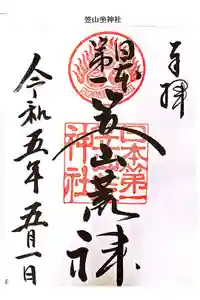 笠山坐神社
奉拝
日本
第一
笠山荒神
日本第一
神社
令和五年五月一日